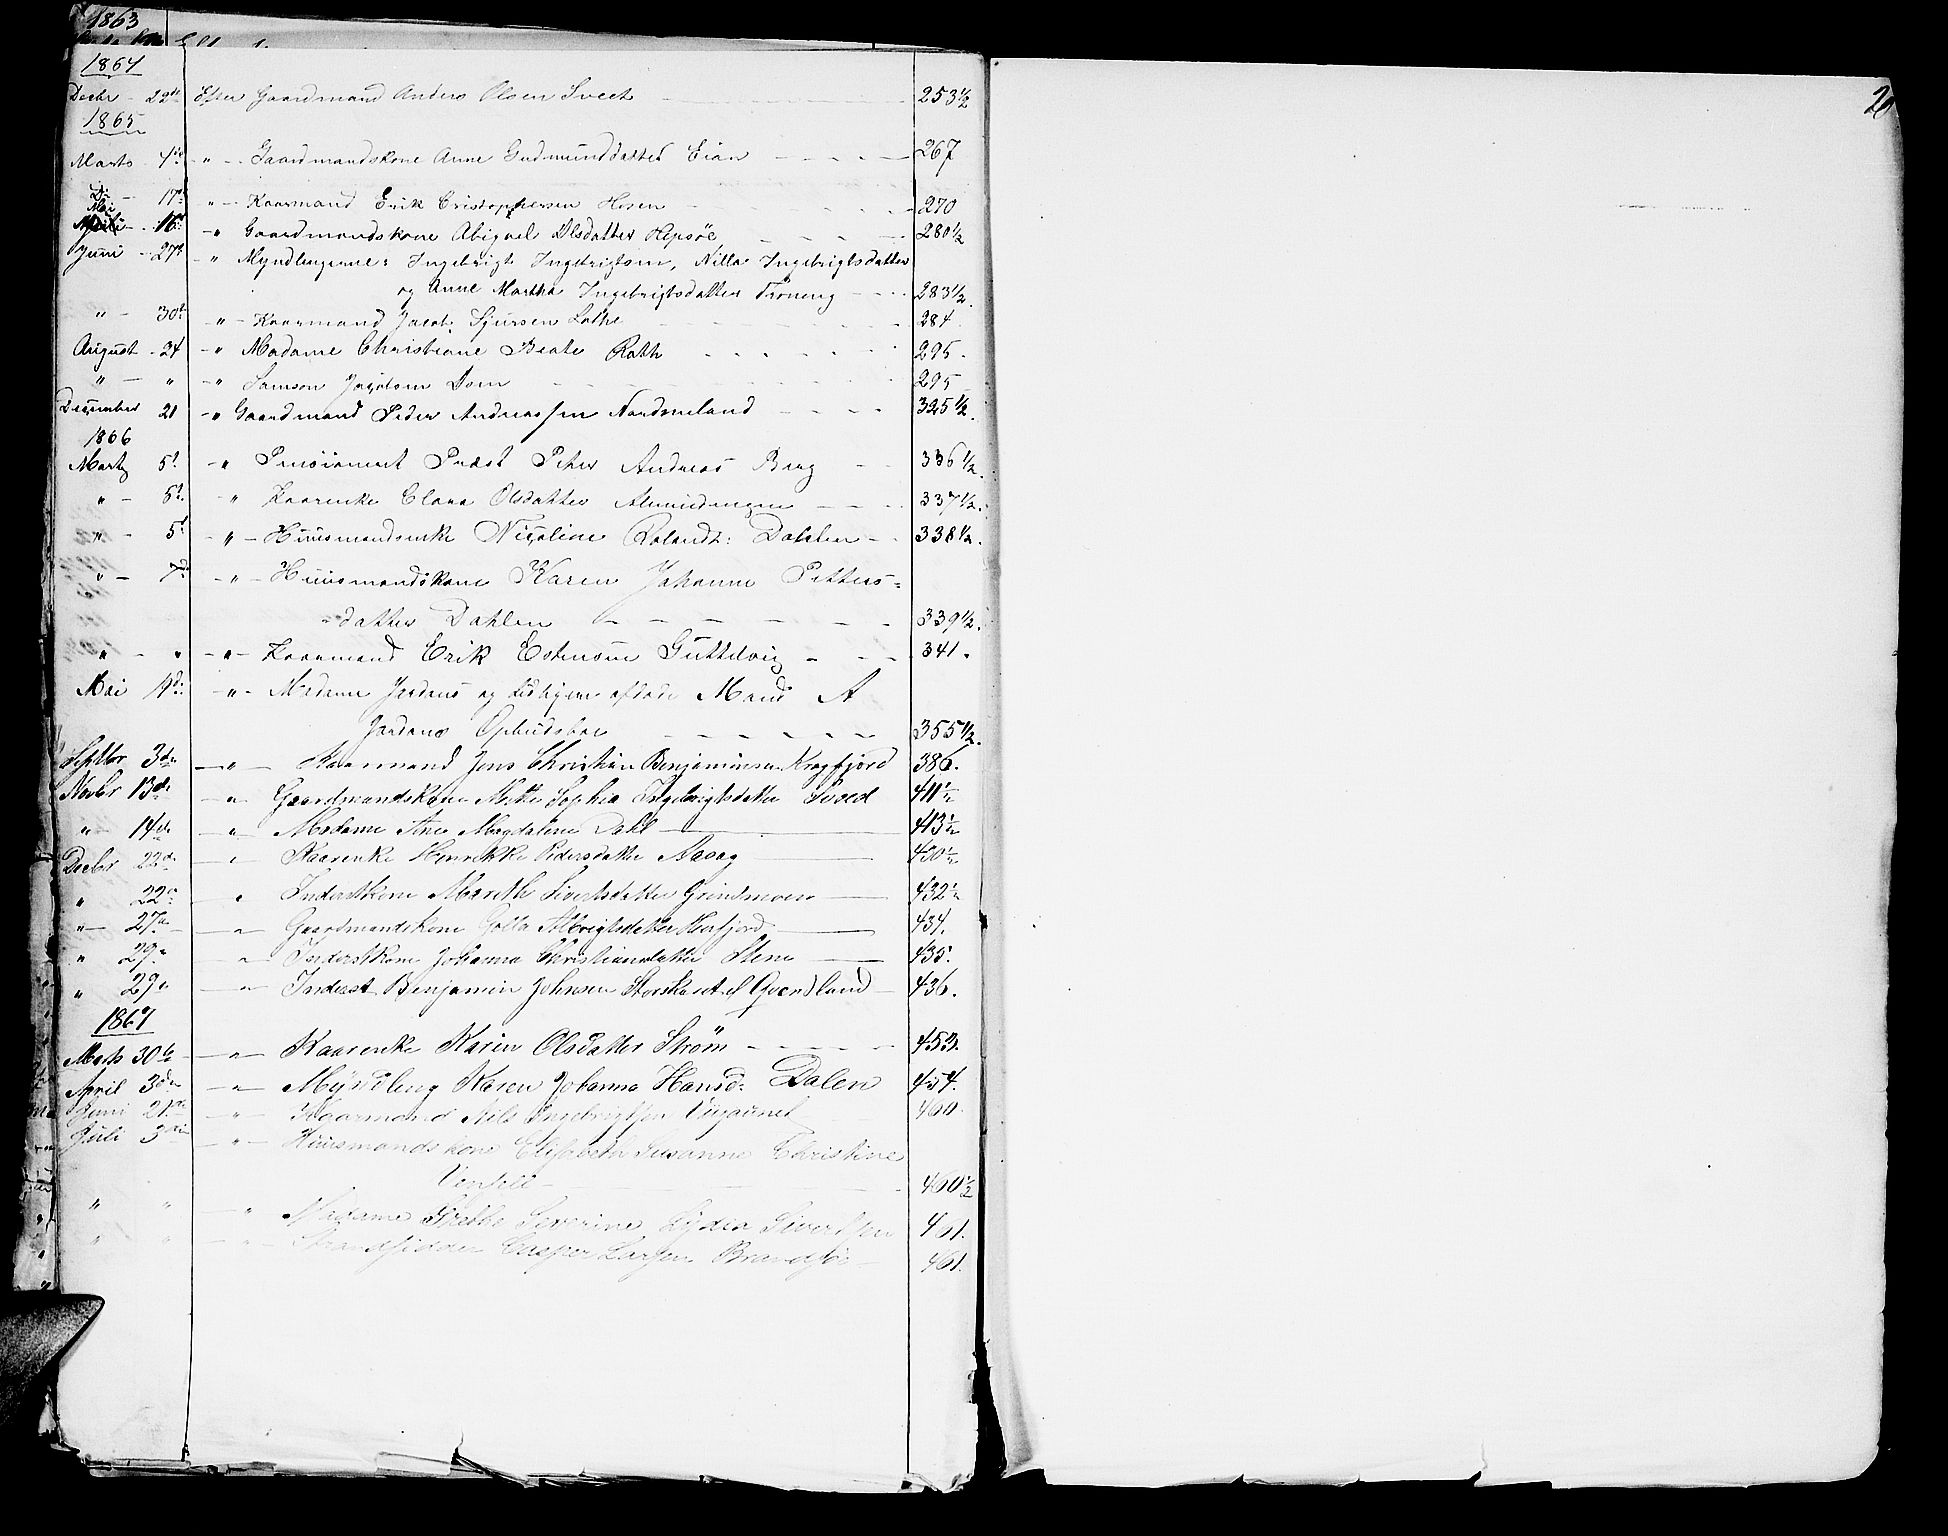 1863
1864
Decbr 22de Efter Gaardmand Anders Olsen Sveet 253 1/2
1865
Marts 4de " Gaardmandskone Anne Gudmunddatter Eian 267
Do 17de " Kaarmand Erik Cristophersen Hosen 270
Mai 16de " Gaardmandskone Abigael Olsdatter Hepsöe 280 1/2
Juni 27de " Myndlingerne: Ingebrigt Ingebrigtsen, Nilla Ingebrigtsdatter
og Anne Martha Ingebrigtsdatter 283 1/2.
" 30te " Kaarmand Jacob Sjursen Lothe 284.
August 24 " Madame Christiane Beate Roth 295.
" " " Samson 295
December 21 " Gaardmand Peder Andreassen Nordmeland 325 1/2.
1866
Marts 5te " Pensioneret Præst Peter Andreas Berg 336 1/2.
" 5te " Kaarenke Olava Olsdatter 337 1/2.
" 5te " Huusmandsenke Nicoline Rolandt: Dahlen 338 1/2.
" 7de " Huusmandskone Karen Johanne Petters=
=datter Dahlen 339 1/2.
" " " Kaarmand Erik Estensen Guttelvig 341.
Mai 4de " Madame Jordans og tidligere afdøde Mand A
Jordans Opbudsboe 355 1/2.
Septbr 3de " Kaarmand Jens Christian Benjaminsen Kragfjord 386.
Novbr 13de " Gaardmandskone Mette Sophia Ingebrigtsdatter Sved 411 1/2
" 14de " Madame Ane Magdalene Dahl 413 1/2
Decbr 22de " Kaarenke Henrikke Pedersdatter Aasag 430 1/2
" 22de " Inderstkone Mareth Sivertsdatter Grindmoen 432 1/2
" 27de " Gaardmandskone Golla Albrigtsdatter Herfjord 434.
" 29de " Inderstkone Johanna Christiansdatter Stene 435.
" 29de " Inderst Benjamin Johnsen 436.
1867
Marts 30te " Kaarenke Karen Olsdatter Strøm 453.
April 3de " Myndling Karen Johanna Hansd: Dalen 454.
Juni 21de " Kaarmand Nils Ingebrigtsen 460
Juli 3die " Huusmandskone Elisabeth Susanne Christine
460 1/2
" " " Madame Grethe Severine Lydia Sivertsen 461.
" " " Strandsidder Casper Larsen Brandsöe 461.
20